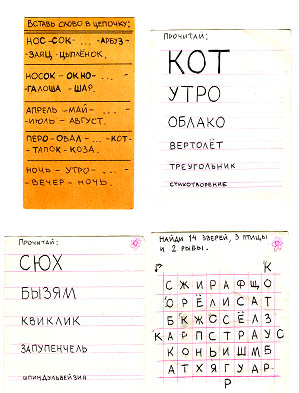 Вставь слово в цепочку:
НОС-СОК-...-АРБУЗ-
-ЗАЯЦ-ЦЫПЛЁНОК.
НОСОК-ОКНО-...-
-ГАЛОША-ШАР.
АПРЕЛЬ-МАЙ-...-
-ИЮЛЬ-АВГУСТ.
ПЕРО-ОВАЛ-...-КОТ-
-ТАПОК-КОЗА.
НОЧЬ-УТРО-...-
-ВЕЧЕР-НОЧЬ.
Прочитай:
КОТ
УТРО
ОБЛАКО
ВЕРТОЛЁТ
ТРЕУГОЛЬНИК
СТИХОТВОРЕНИЕ
Прочитай:
СЮХ
БЫЗЯМ
КВИКЛИК
ЗАПУПЕНЧЕЛЬ
ШПИНДУЛЬВЕЙЗИЯ
Найди 14 зверей, 3 птицы
и 2 рыбы.
К
СЖИРАФЩО
ОРЁЛИСАТ
БКЖОСЁЛЗ
КАРПСТРАУС
КОНЬИШМБ
АТХЯГУАР
Р